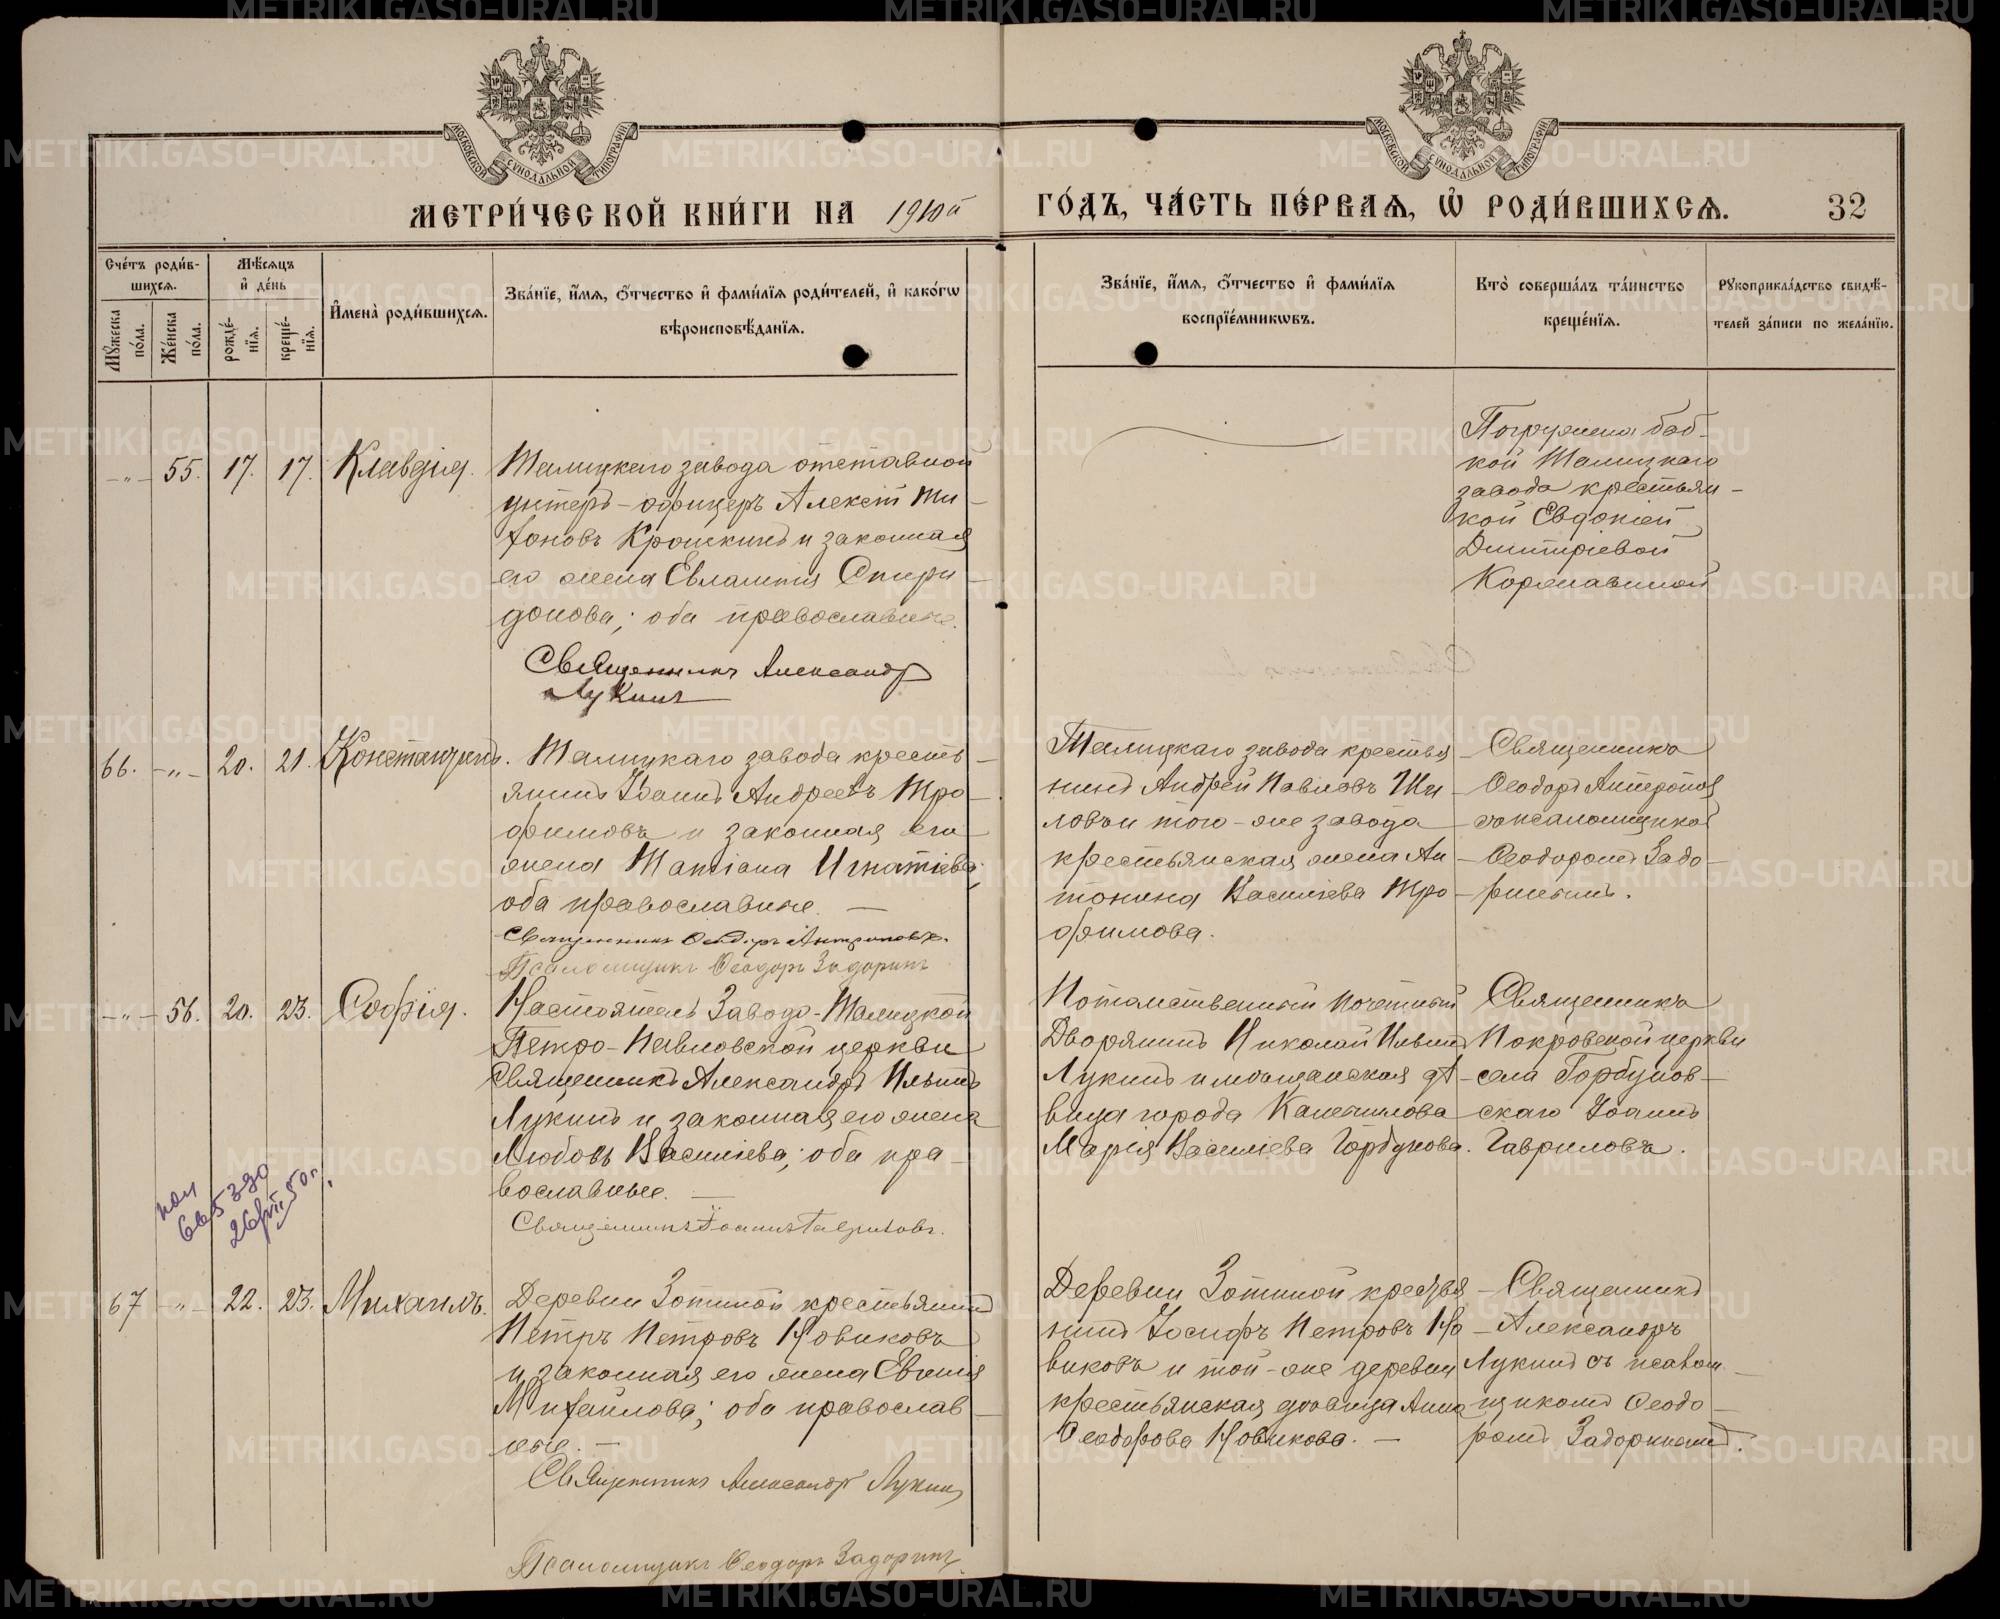 МЕТРИ́ЧЕСКОЙ КНИ́ГИ НА 1910й
ГО́ДЪ, ЧА́СТЬ ПЕ́РВАѦ, Ѡ҆ РОДИ́ВШИХСѦ.
32
МОСКОВСКОЙ СѴНОДАЛЬНОЙ ТИПОГРАФІИ
МОСКОВСКОЙ СѴНОДАЛЬНОЙ ТИПОГРАФІИ
Сче́тъ роди́в-
шихсѧ.
Мꙋ́жеска по́ла.
Же́нска по́ла.
Мѣ́сѧцъ
и҆ де́нь
рожде́-
нїѧ.
креще́-
нїѧ.
И҆мена̀ роди́вшихсѧ.
Зва́нїе, и҆́мѧ, ѻ҆́тчество и҆ фами́лїѧ роди́телей, и҆ како́гѡ
вѣроисповѣ́данїѧ.
Зва́нїе, и҆́мѧ, ѻ҆́тчество и҆ фами́лїѧ
воспрїе́мникѡвъ.
Кто̀ соверша́лъ та́инство
креще́нїѧ.
Рꙋкоприкла́дство свидѣ́-
телей за́писи по жела́нїю.
-„- 55. 17. 17. Клавдія.
Талицкаго завода отставной
унтеръ-офицеръ Алексѣй Ти-
хоновъ Крошкинъ и законная
его жена Евлампія Спири-
донова; оба православные.
Священникъ Александръ
Лукинъ
Погружена баб-
кой Талицкаго
завода крестьян-
кой Евдокіей
Дмитріевой
Коржавиной
66. -„- 20. 21. Константинъ.
Талицкаго завода кресть-
янинъ Іоаннъ Андреевъ Тро-
фимовъ и законная его
жена Татіана Игнатіева;
оба православные.
Священникъ Ѳеодоръ Антроповъ.
Псаломщикъ Ѳеодоръ Задоринъ
Талицкаго завода крестья-
нинъ Андрей Павловъ Ши-
ловъ и того-же завода
крестьянская жена Ан-
тонина Васильева Тро-
фимова.
Священникъ
Ѳеодоръ Антроповъ
съ псаломщикомъ
Ѳеодоромъ Задо-
ринымъ.
-„- 56. 20. 23. Софія.
Настоятель Заводо-Талицкой
Петро-Павловской церкви
Священникъ Александръ Ильинъ
Лукинъ и законная его жена
Любовь Васильева; оба пра-
вославные.
Священникъ Іоаннъ Гавриловъ.
Потомственный почетный
Дворянинъ Николай Ильинъ
Лукинъ и мѣщанская дѣ-
вица города Камышлова
Марія Васильева Горбунова.
Священникъ
Покровской церкви
села Горбунов-
скаго Іоаннъ
Гавриловъ.
26/VII 50 г.
67 -„- 22. 23. Михаилъ.
Деревни Зотиной крестьянинъ
Петръ Петровъ Новиковъ
и законная его жена Евгенія
Михайлова; оба православ-
ные.
Священникъ Александръ Лукинъ
Псаломщикъ Ѳеодоръ Задоринъ.
Деревни Зотиной крестья-
нинъ Іосифъ Петровъ Но-
виковъ и той-же деревни
крестьянская дѣвица Анна
Ѳеодорова Новикова.
Священникъ
Александръ
Лукинъ съ псалом-
щикомъ Ѳеодо-
ромъ Задоринымъ.
METRIKI.GASO-URAL.RU